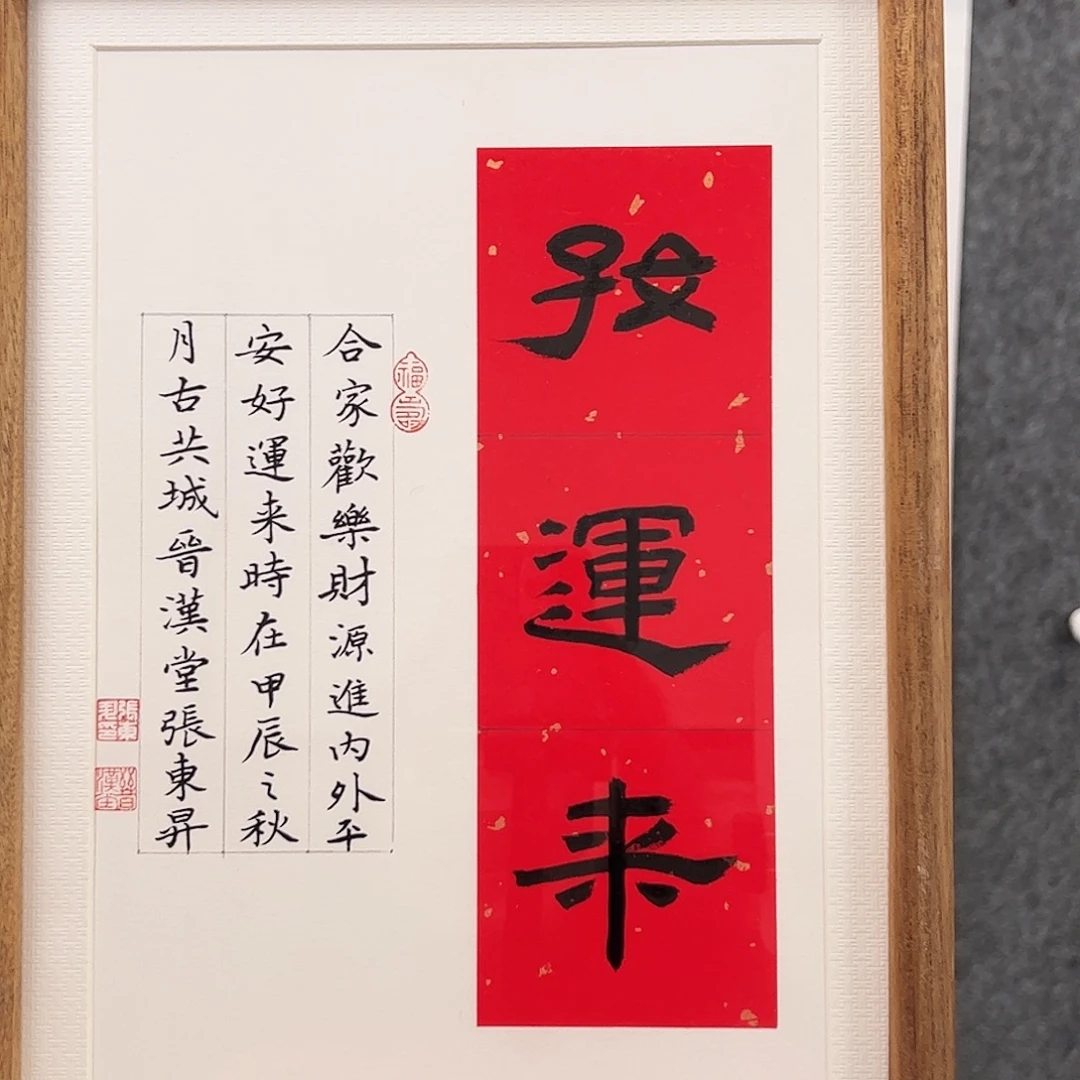 好運来
福壽
合家歡樂財源進内外平
安好運来時在甲辰之秋
月古共城晉漢堂張東昇
張東昇印